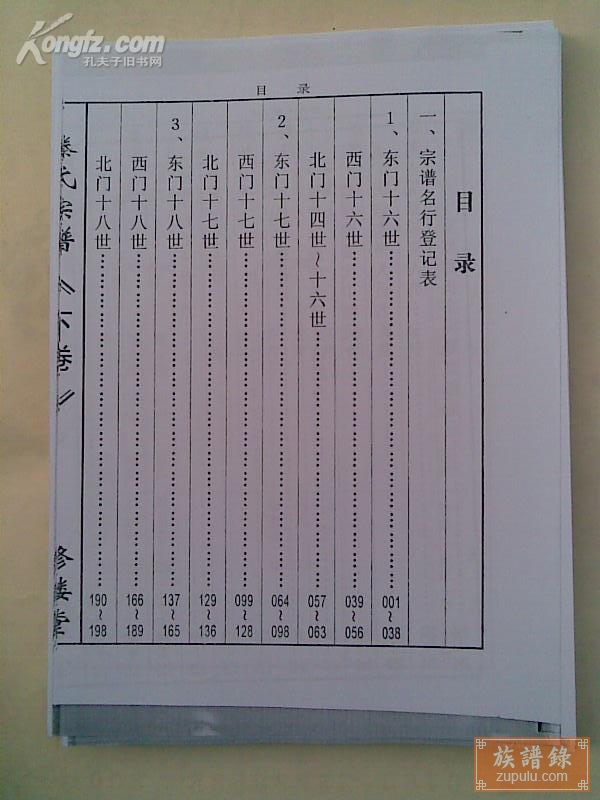 Kongfz.com
孔夫子旧书网
目录
目录
一、宗谱名行登记表
1、东门十六世……001~038
西门十六世……039~056
北门十四世~十六世……057~063
2、东门十七世……064~098
西门十七世……099~128
北门十七世……129~136
3、东门十八世……137~165
西门十八世……166~189
北门十八世……190~198
氏宗谱《下卷》
堂
族譜錄
zupulu.com